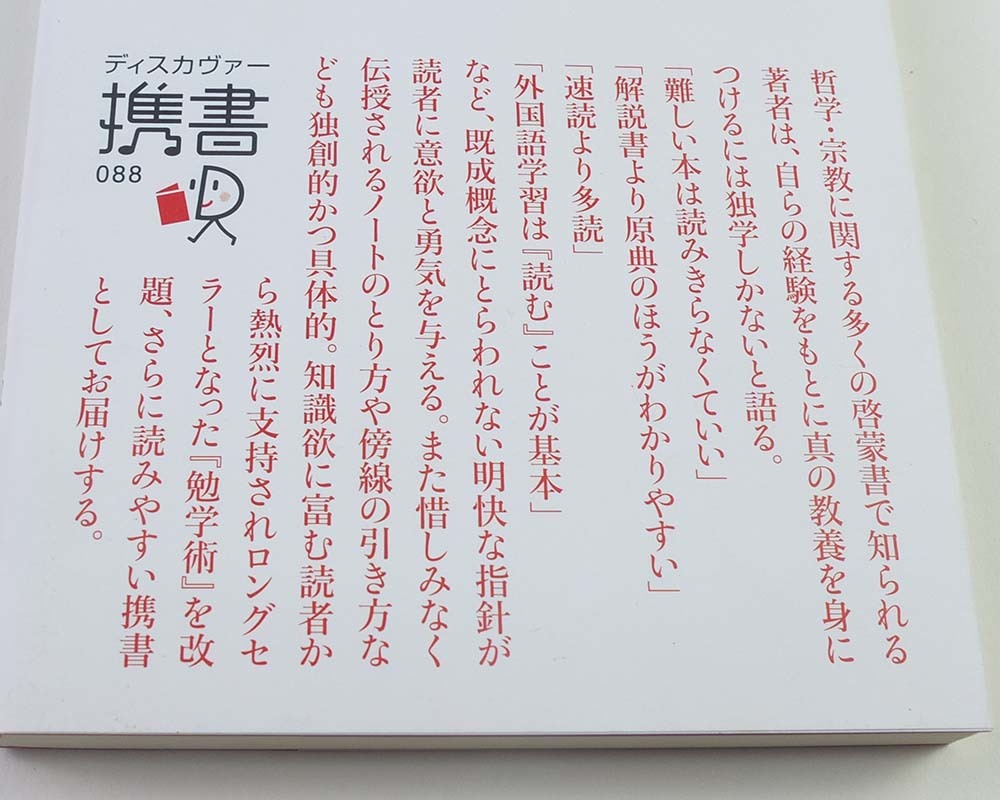 哲学・宗教に関する多くの啓蒙書で知られる
著者は、自らの経験をもとに真の教養を身に
つけるには独学しかないと語る。
「難しい本は読みきらなくていい」
「解説書より原典のほうがわかりやすい」
「速読より多読」
「外国語学習は『読む』ことが基本」
など、既成概念にとらわれない明快な指針が
読者に意欲と勇気を与える。また惜しみなく
伝授されるノートのとり方や傍線の引き方な
ども独創的かつ具体的。知識欲に富む読者か
ら熱烈に支持されロングセ
ラーとなった『勉学術』を改
題、さらに読みやすい携書
としてお届けする。
ディスカヴァー
携書
088